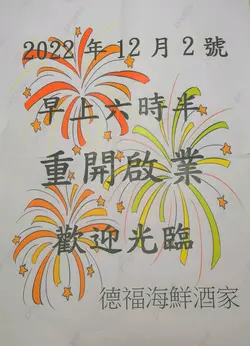 2022年12月2號
早上六時半
重開啟業
歡迎光臨
德福海鮮酒家